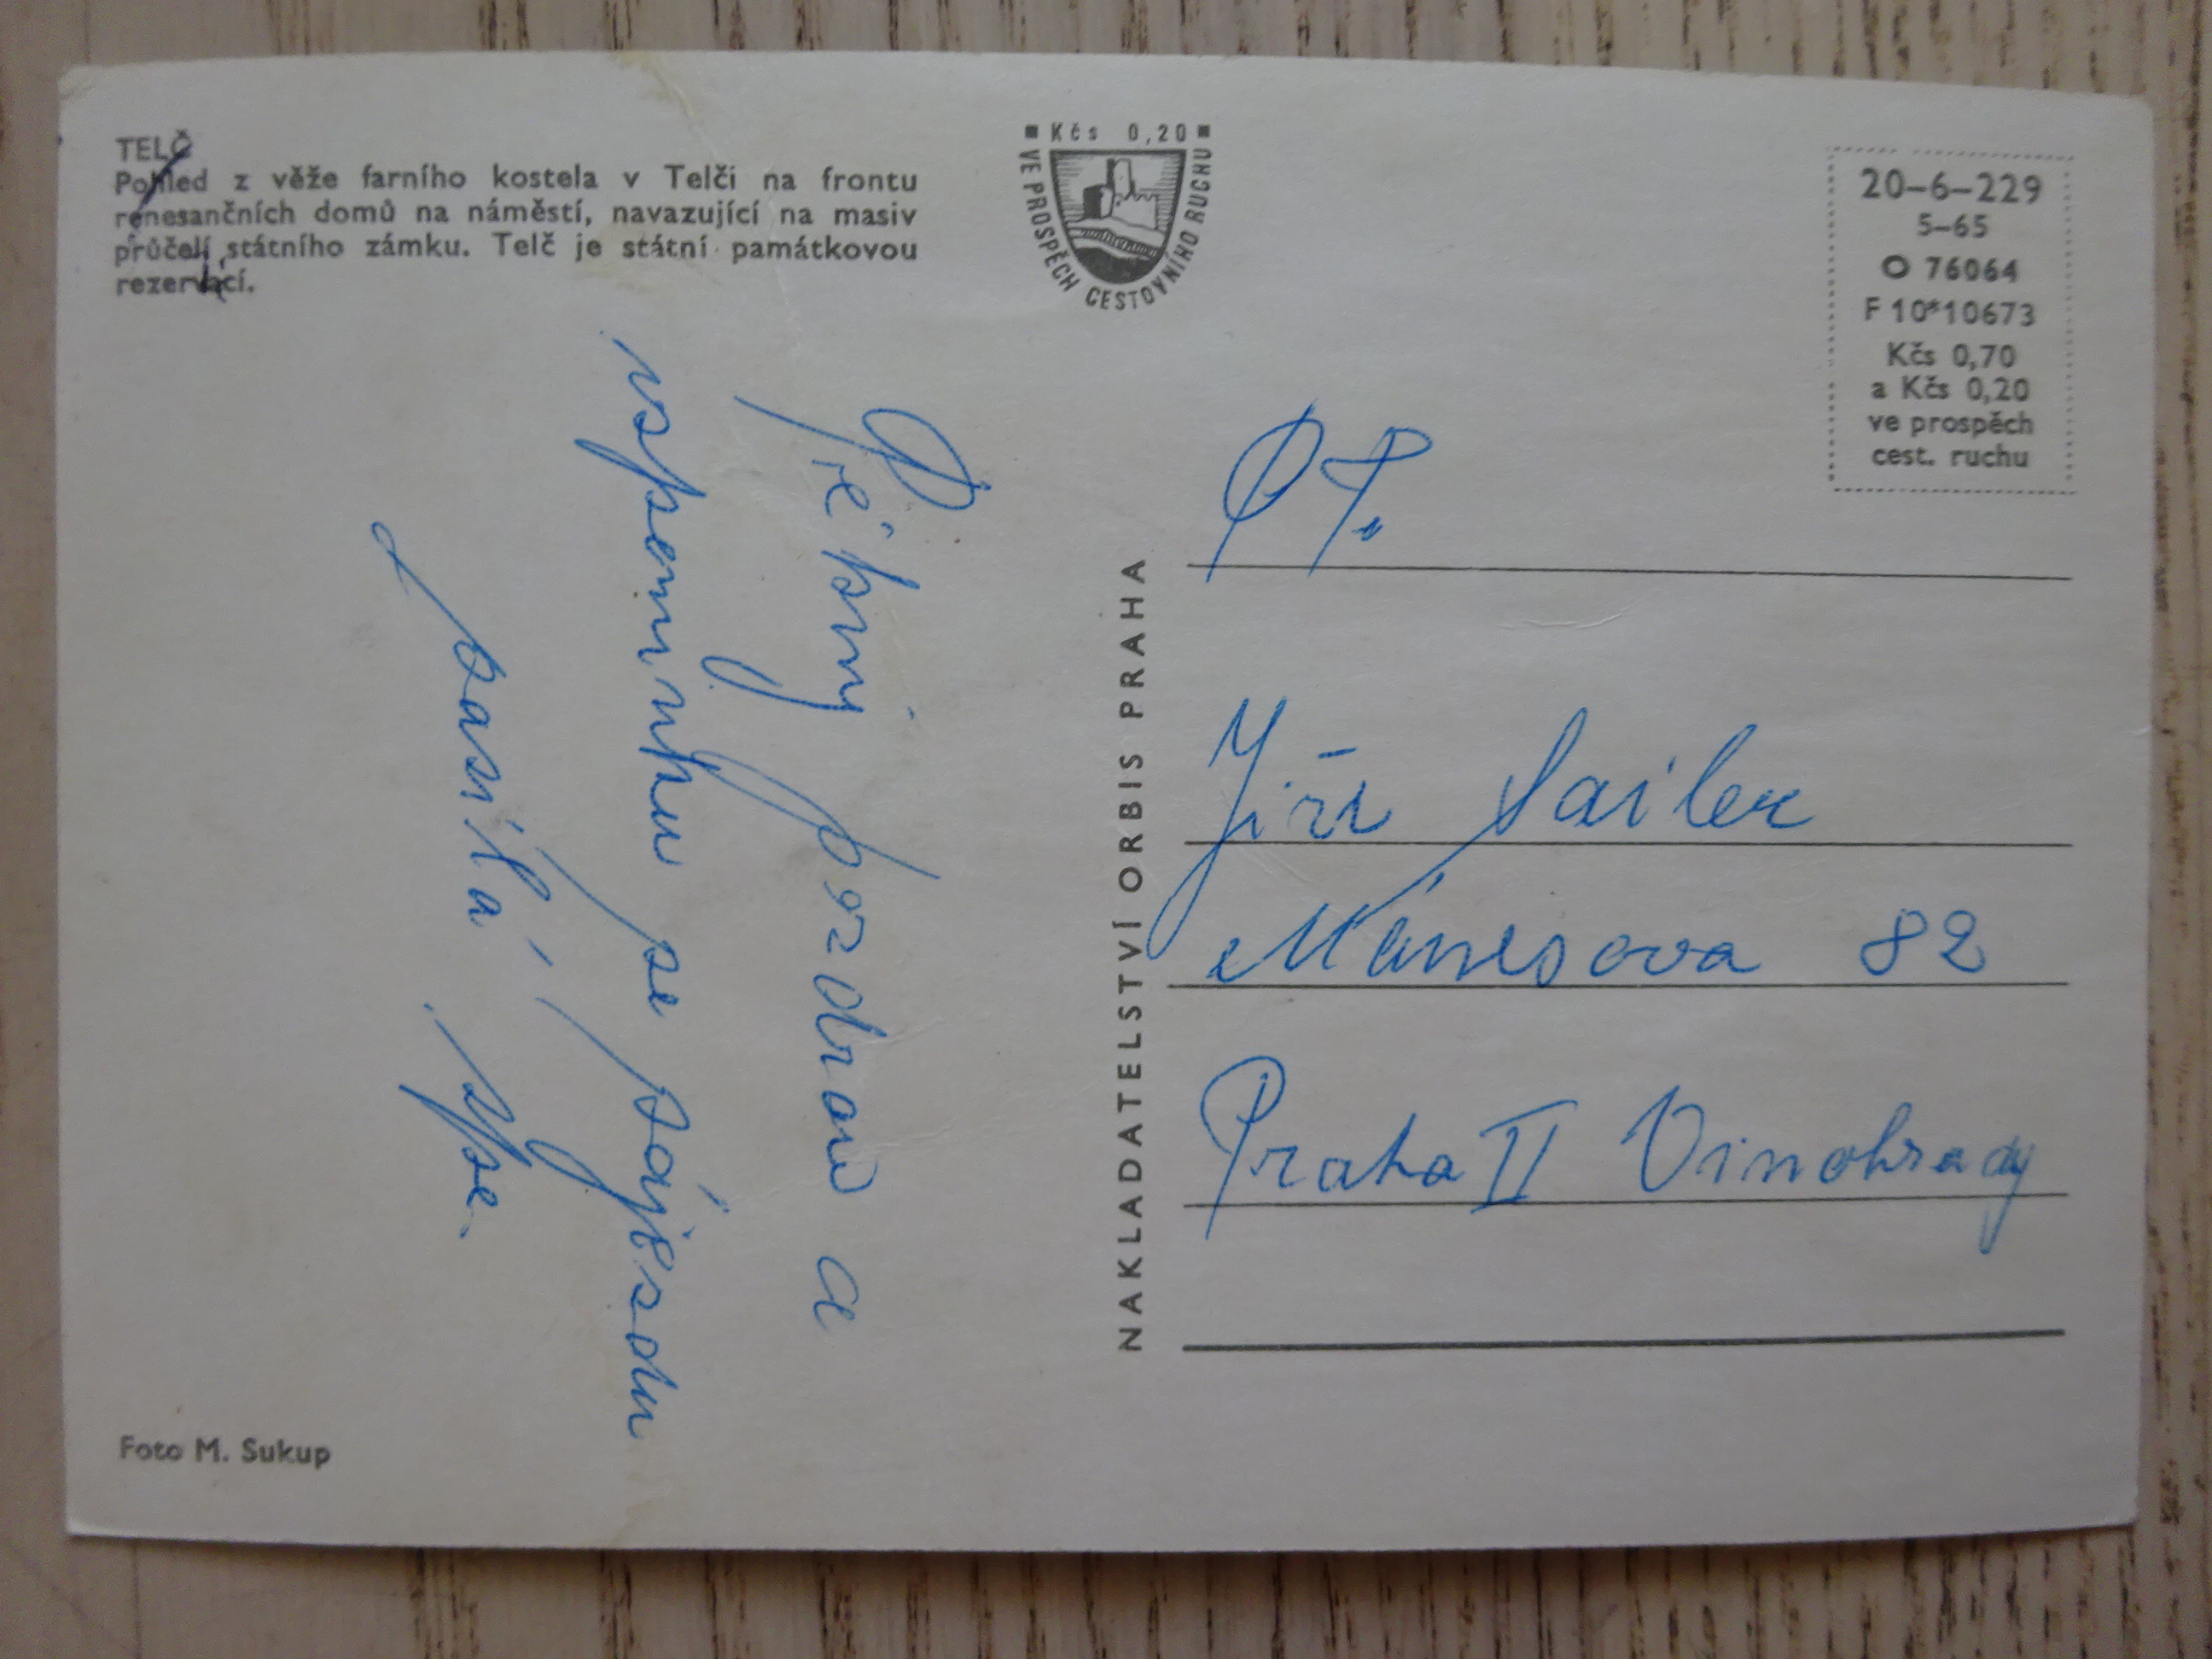 TELČ
Pohled z věže farního kostela v Telči na frontu
renesančních domů na náměstí, navazující na masiv
průčelí státního zámku. Telč je státní památkovou
rezervací.
■ Kčs 0,20 ■
VE PROSPĚCH CESTOVNÍHO RUCHU
20-6-229
5-65
O 76064
F 10*10673
Kčs 0,70
a Kčs 0,20
ve prospěch
cest. ruchu
Pěkný pozdrav a
vspomínku se zájezdu
zasílá
NAKLADATELSTVÍ ORBIS PRAHA
PT.
Jiří Sailer
Mánesova 82
Praha II Vinohrady
Foto M. Sukup